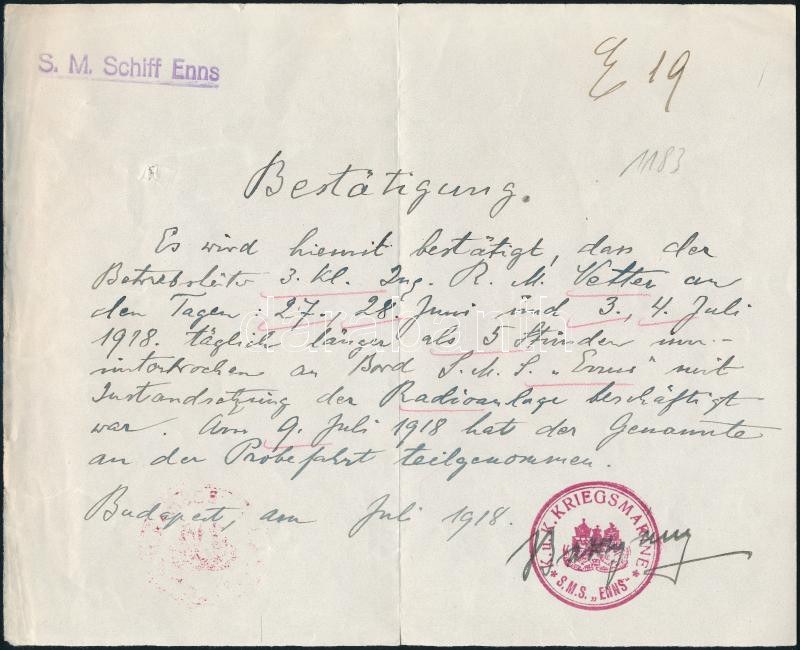 S. M. Schiff Enns
E 19
1183
Bestätigung.
Es wird hiemit bestätigt, dass der
Betriebsleiter 3. Kl. Ing. R. M. Vetter an
den Tagen: 27., 28. Juni und 3., 4. Juli
1918. täglich länger als 5 Stunden unun-
unterbrochen an Bord S. M. S. „Enns" mit
Instandsetzung der Radioanlage beschäftigt
war. Am 9. Juli 1918 hat der Genannte
an der Probefahrt teilgenommen.
Budapest, am Juli 1918.
K. u. K. KRIEGSMARINE
* S.M.S. „ENNS" *
darabanth